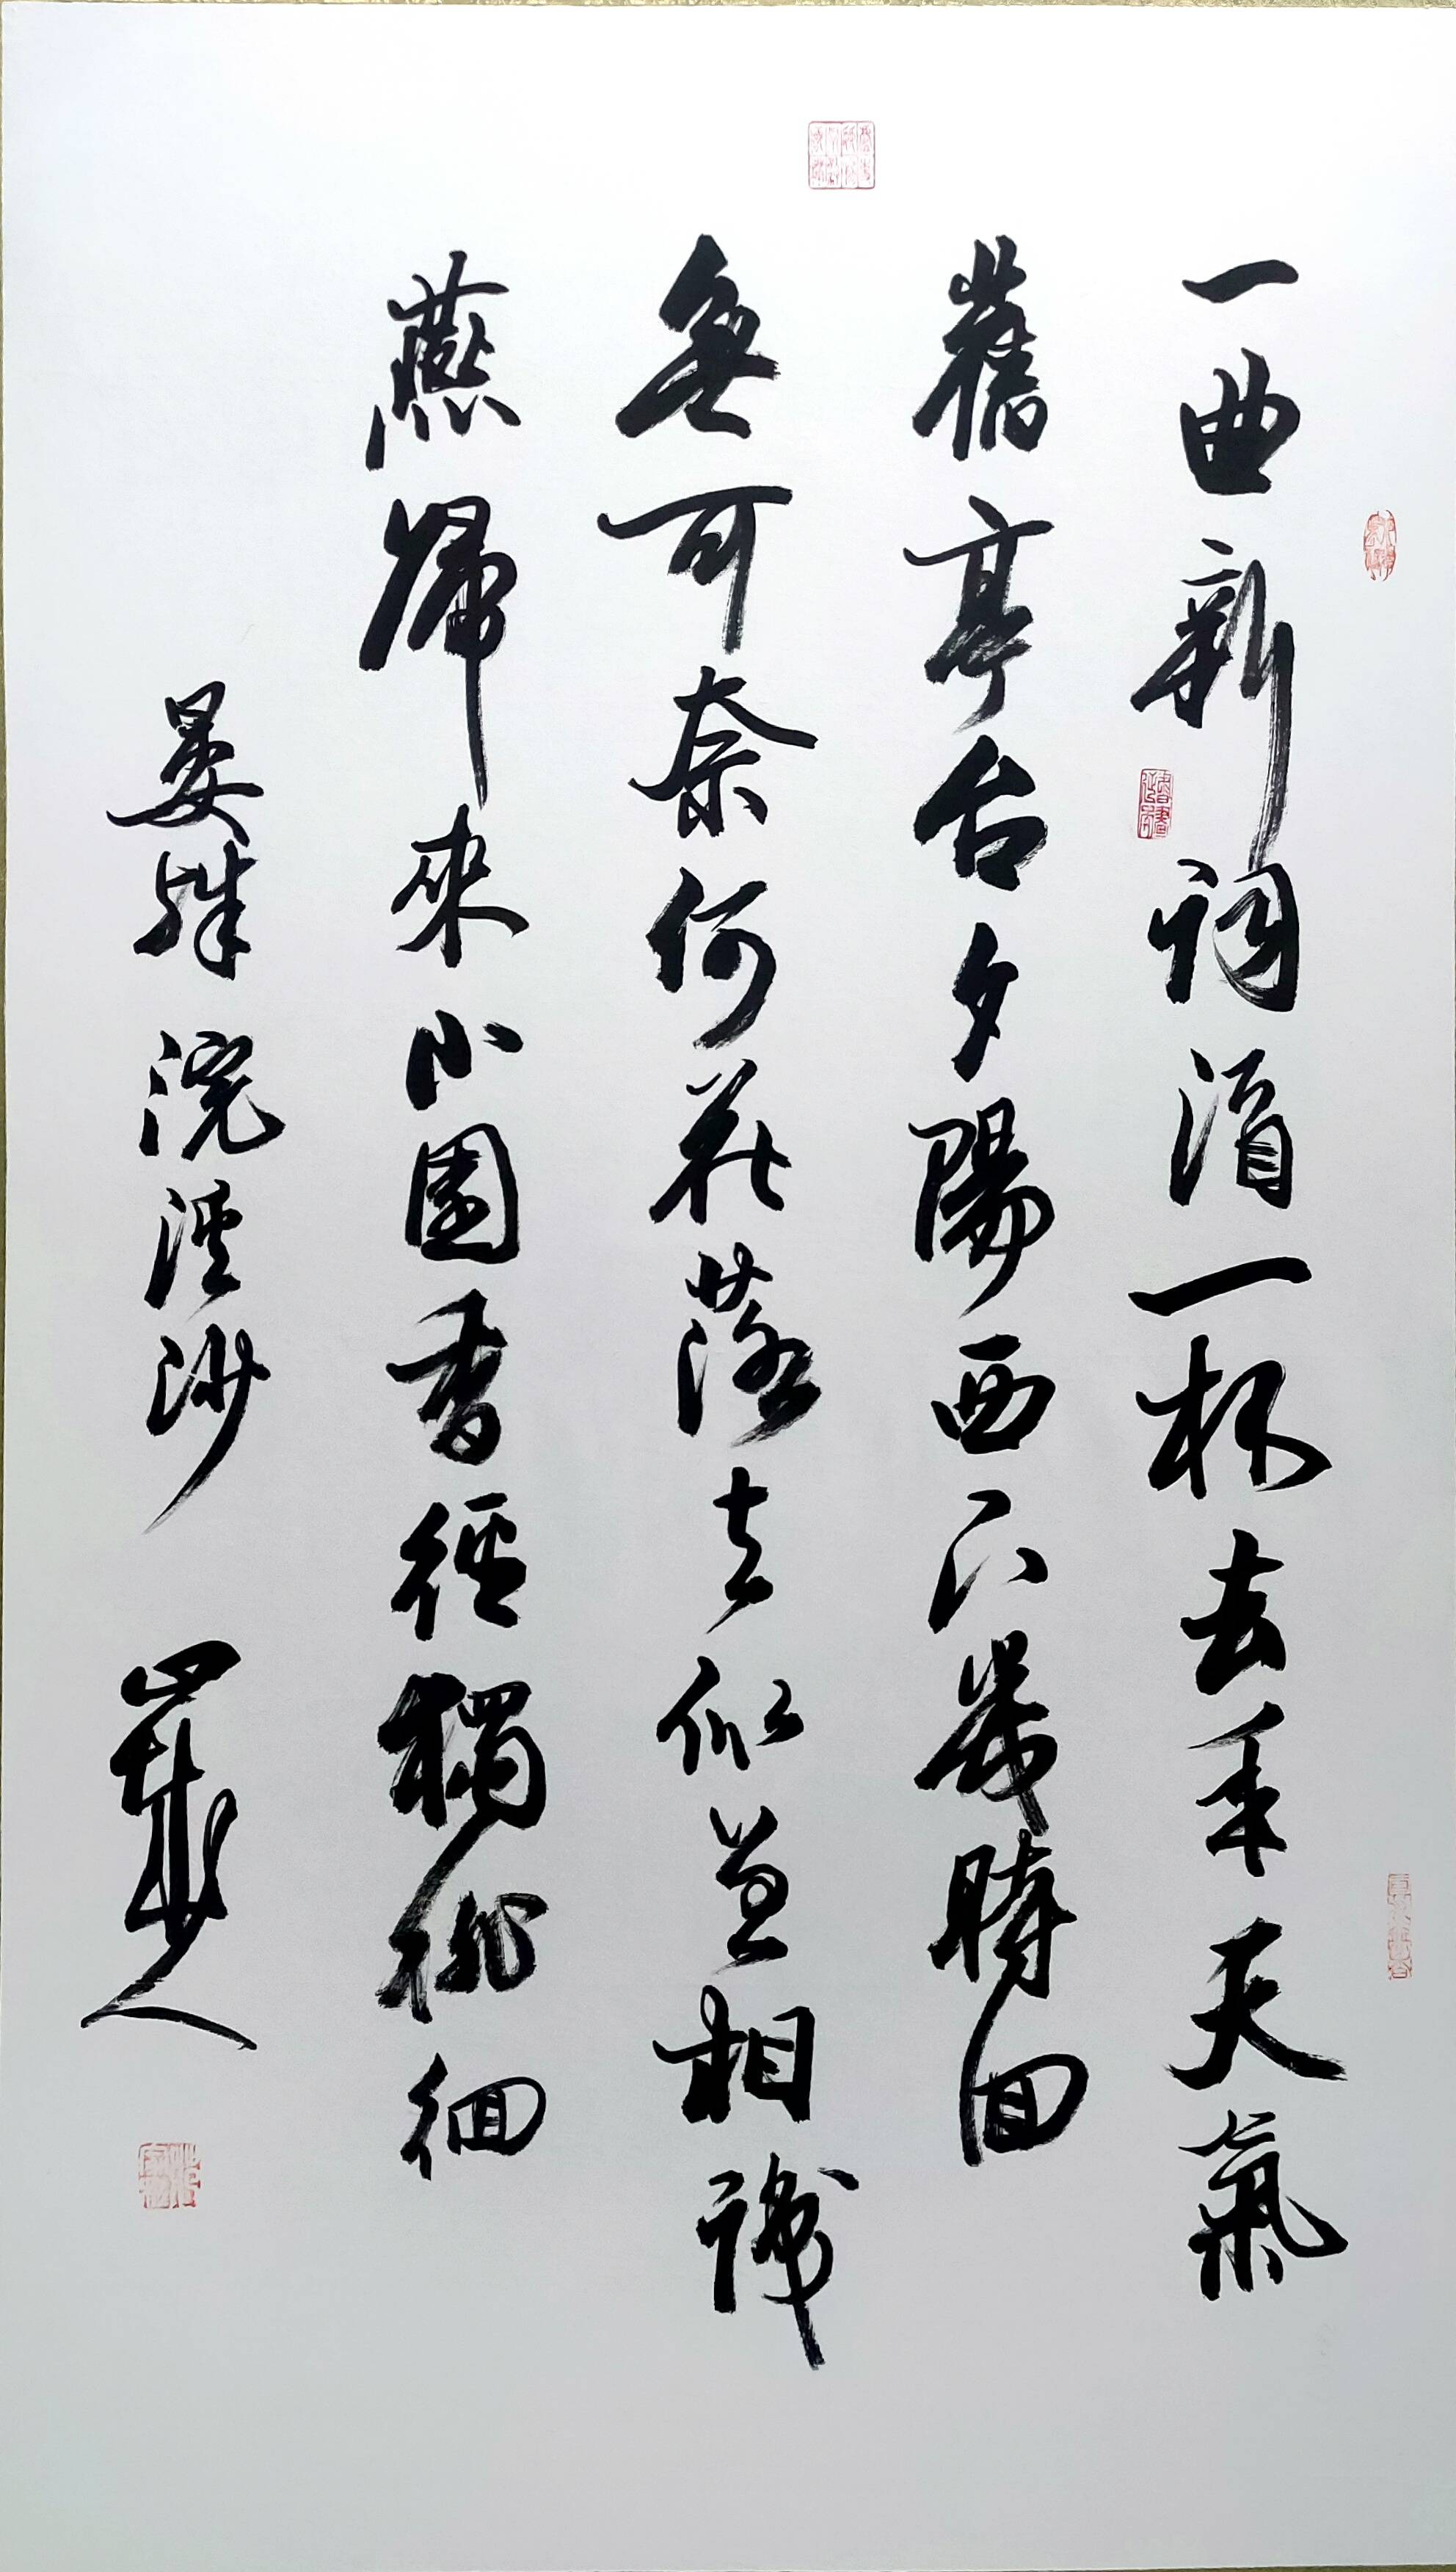 一曲新詞酒一杯去年天氣
舊亭台夕陽西下幾時回
無可奈何花落去似曾相識
燕歸來小園香徑獨徘徊
晏殊 浣溪沙